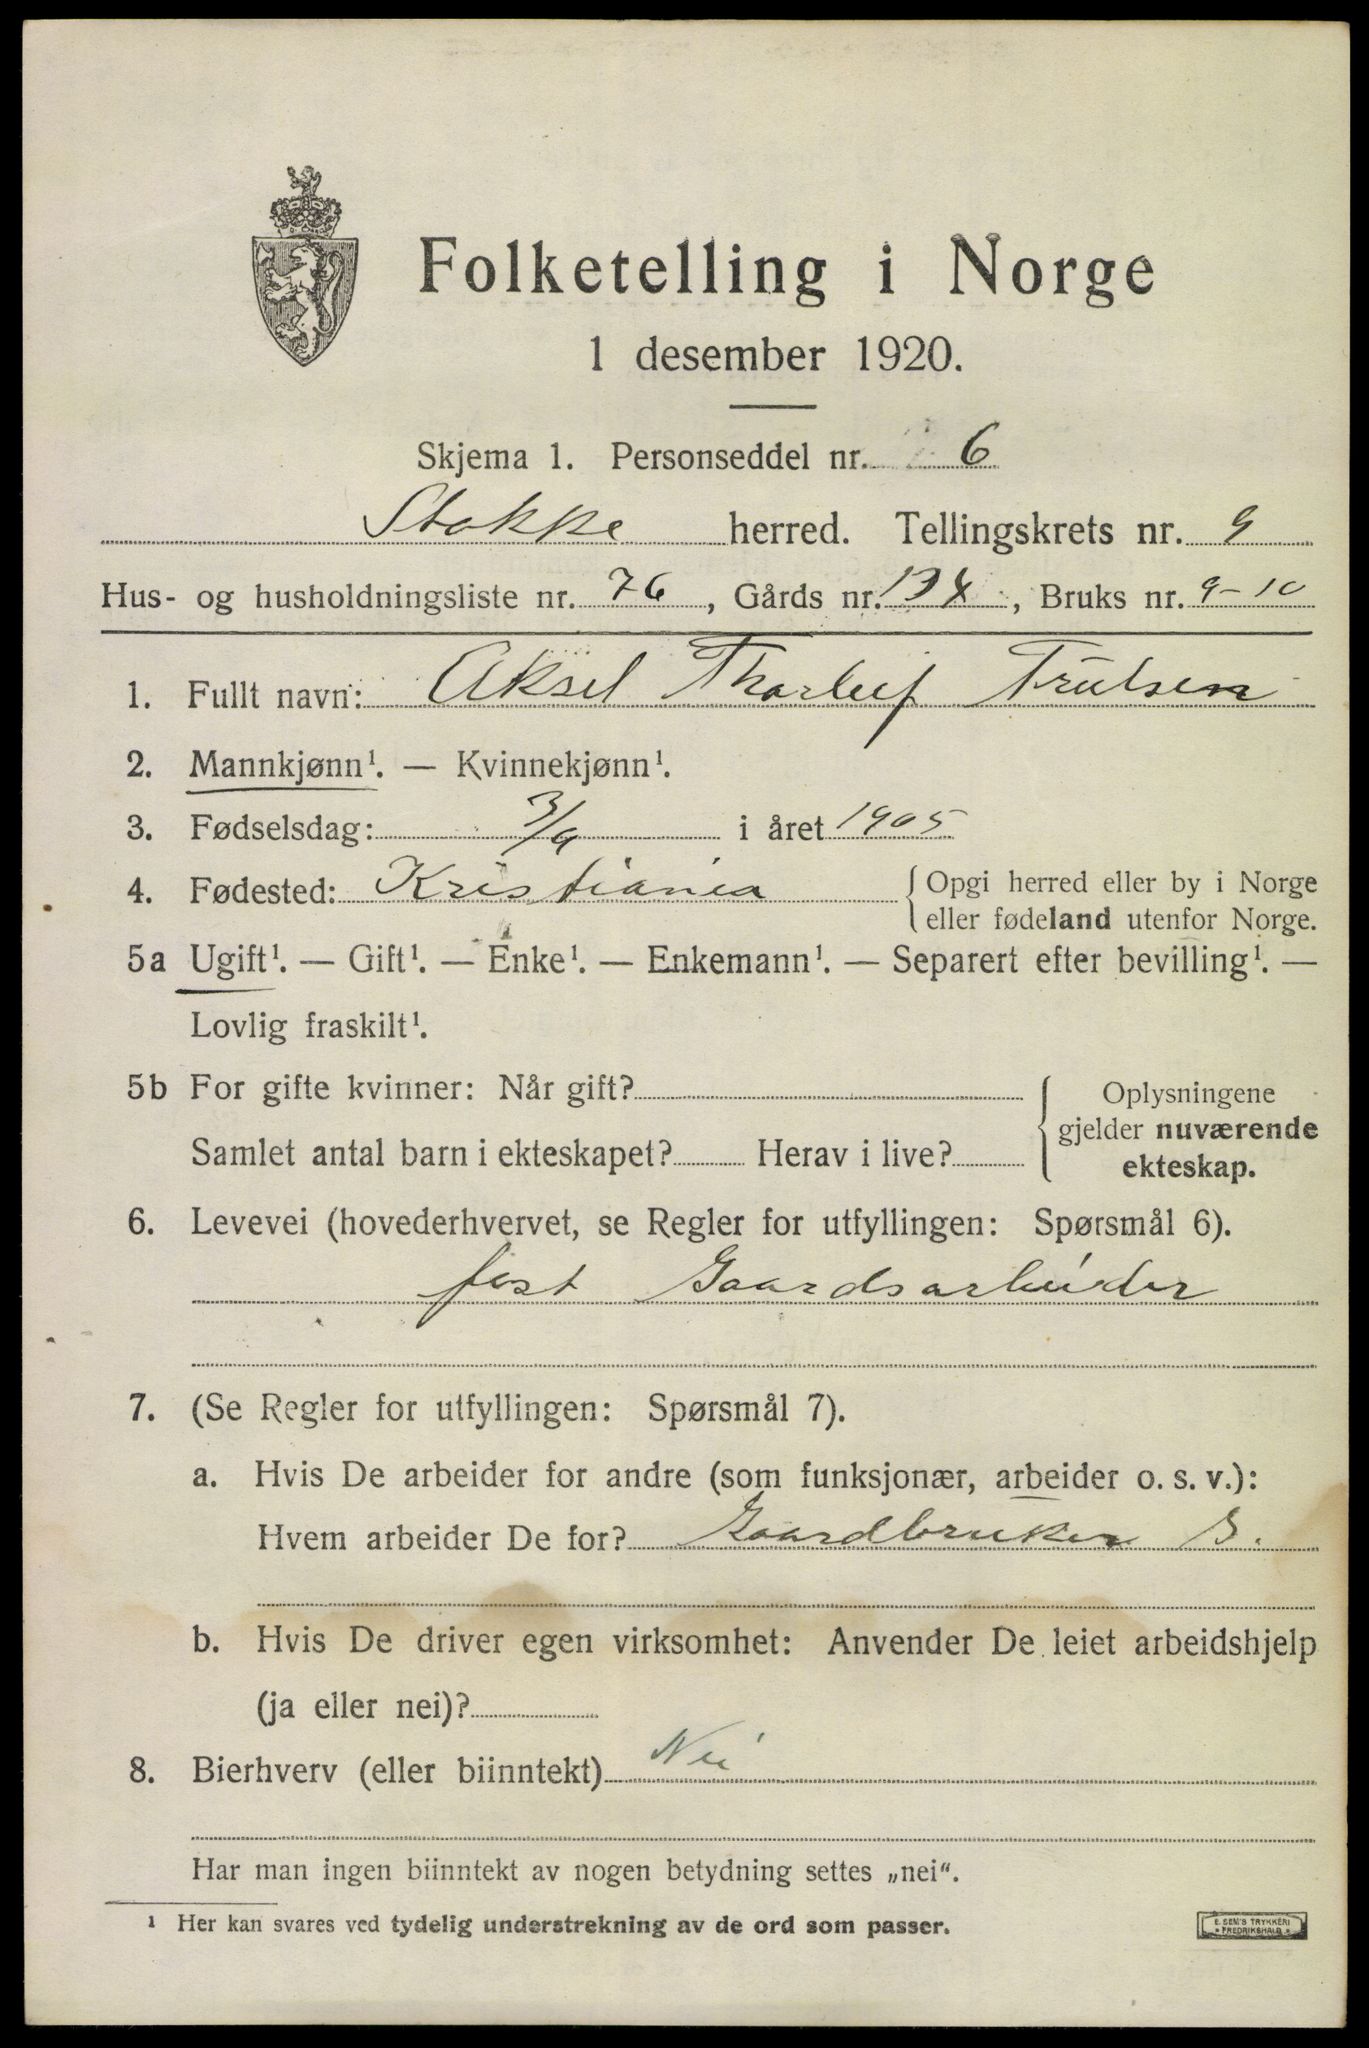 Folketelling i Norge
1 desember 1920.
Skjema 1. Personseddel nr. 6
Stokke herred. Tellingskrets nr. 9
Hus- og husholdningsliste nr. 76, Gårds nr. 134, Bruks nr. 9-10
1. Fullt navn: Aksel Thorleif Trulsen
2. Mannkjønn¹. — Kvinnekjønn¹.
3. Fødselsdag: 3/9 i året 1905
4. Fødested: Kristiania { Opgi herred eller by i Norge
eller fødeland utenfor Norge.
5a Ugift¹. — Gift¹. — Enke¹. — Enkemann¹. — Separert efter bevilling¹. —
Lovlig fraskilt¹.
5b For gifte kvinner: Når gift? { Oplysningene
gjelder nuværende
Samlet antal barn i ekteskapet? Herav i live?
ekteskap.
6. Levevei (hovederhvervet, se Regler for utfyllingen: Spørsmål 6).
fast Gaardsarbeider
7. (Se Regler for utfyllingen: Spørsmål 7).
a. Hvis De arbeider for andre (som funksjonær, arbeider o. s. v.):
Hvem arbeider De for? Gaardbruker S.
b. Hvis De driver egen virksomhet: Anvender De leiet arbeidshjelp
(ja eller nei)?
8. Bierhverv (eller biinntekt) Nei
Har man ingen biinntekt av nogen betydning settes „nei".
¹ Her kan svares ved tydelig understrekning av de ord som passer.
E. SEM'S TRYKKERI
FREDRIKSHALD